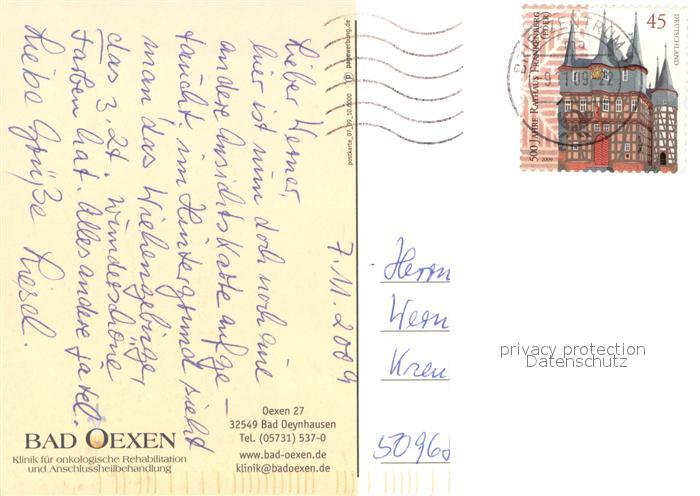 7.11.2009
Lieber Werner,
hier ist nun doch noch eine
andere Ansichtskarte aufge-
taucht: im Hintergrund sieht
man das Wiehengebirge,
das z. Zt wunderschöne
Farben hat. Alles andere ja tel.
Liebe Grüße Liesel.
BAD OEXEN
Klinik für onkologische Rehabilitation
und Anschlussheilbehandlung
Oexen 27
32549 Bad Oeynhausen
Tel. (05731) 537-0
www.bad-oexen.de
klinik@badoexen.de
500 JAHRE RATHAUS FRANKENBERG
(EDER)
45
DEUTSCHLAND
2009
BRIEFZENTRUM
Herrn
Wern
Kren
50968
privacy protection
Datenschutz